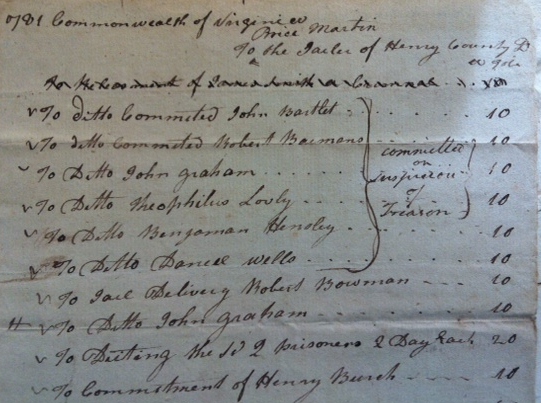 1781 Commonwealth of Virginia
Brice Martin
To the Jailer of Henry County Dr
To the Commitment of
To ditto Commeted John Bartlet 10
To ditto Commeted Robert Boemans 10
To Ditto John graham 10
To Ditto Theophilus Lovly 10
To Ditto Bengaman Hensley 10
To Ditto Daneel wells 10
committed
on
suspicion
of
Treason
To Jail Delivery Robert Bowman 10
To Ditto John graham 10
To Dieting the sd 2 prisoners 2 Day Each 20
To Commitment of Henry Burch 10